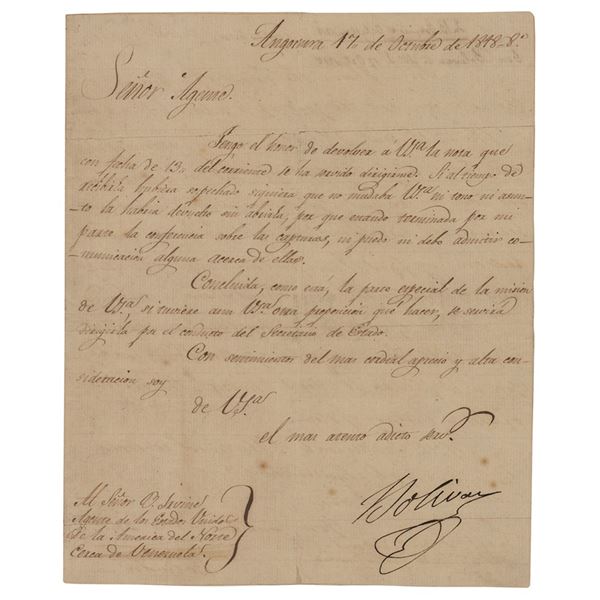 Angostura 17, de Octubre de 1818-8.º
Señor Agente.
Tengo el honor de devolver á V.S.ª la nota que
con fecha de 13,, del corriente se ha servido dirigirme. Si al tiempo de
recibirla hubiera sospechado siquiera que no mudaba V.S.ª ni tono ni asun-
-to la habria devuelto sin abrirla, por que estando terminada por mi
parte la conferencia sobre las capturas, ni puedo ni debo admitir co-
-municacion alguna acerca de ellas.
Concluida, como está, la parte especial de la mision
de V.S.ª, si tuviere aun V.S.ª otra proposicion que hacer, se servirá
dirigirla por el conducto del Secretario de Estado.
Con sentimientos del mas cordial aprecio y alta con-
sideracion soy
de V.S.ª
el mas atento adicto serv.ᵒʳ
Bolivar
Al Señor B. Irvine
Agente de los Estados Unidos
de la America del Norte
cerca de Venezuela.